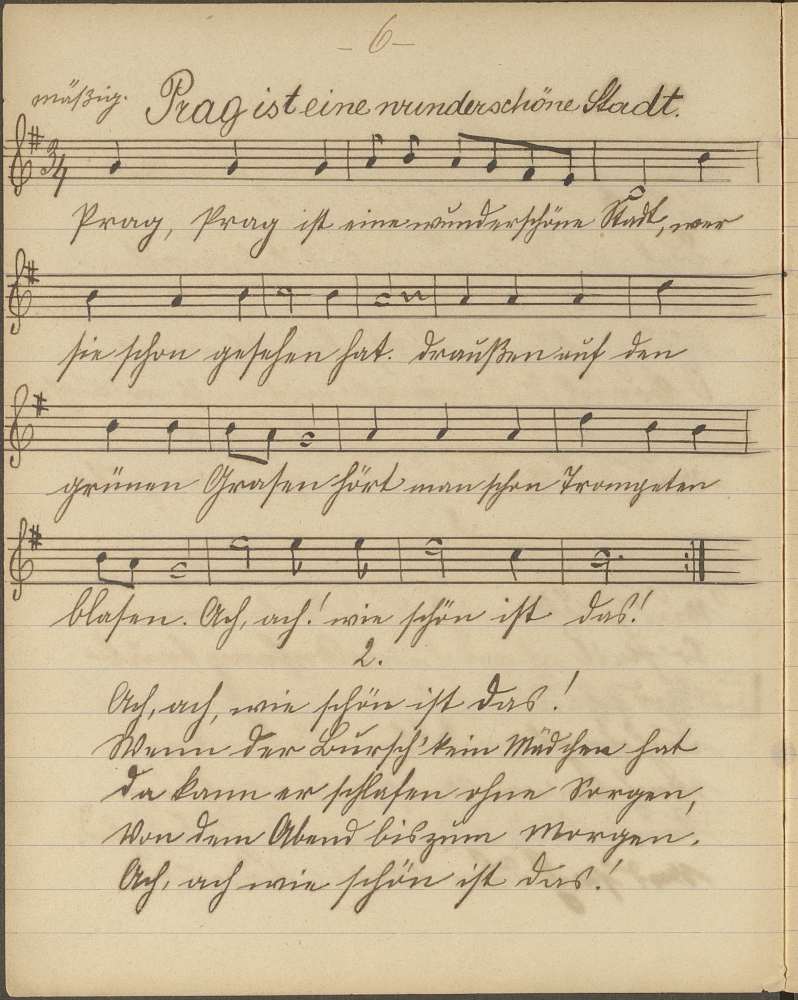 – 6 –
mäßig. Prag ist eine wunderschöne Stadt.
3/4
Prag, Prag ist eine wunderschöne Stadt, wer
sie schon gesehen hat. draußen auf den
grünen Grasen hört man schon Trompeten
blasen. Ach, ach! wie schön ist das!
2.
Ach, ach, wie schön ist das!
Wenn der Bursch' kein Mädchen hat
da kann er schlafen ohne Sorgen,
Von dem Abend bis zum Morgen.
Ach, ach wie schön ist das!